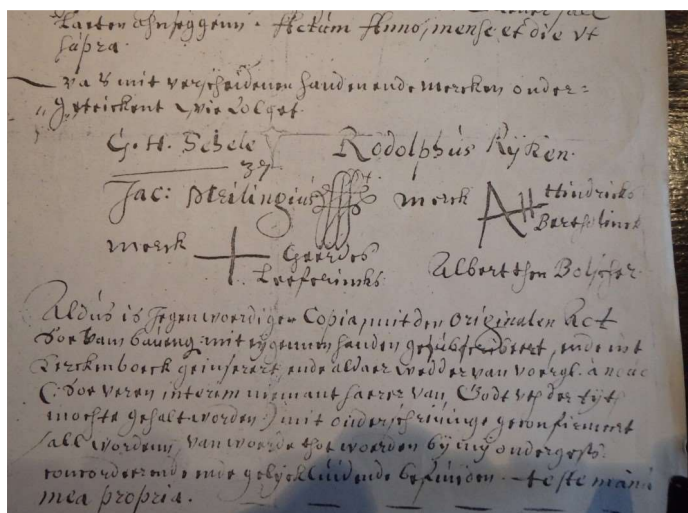 laeten ahnseggenn. Actum Anno, mense et die vt
supra.
va s mit verscheidenen handen ende mercken onder=
geteickent wie volget.
G. H. Schele Rodolphus Ryken.
37
Jac: Meilingius merck AH Hindricks
Bertelinck
merck Geerdes
Leeferincks Albert then Bolscher
Aldus is Jegenwoerdiger Copia, mit den Originalen Act
Soe van baueng. mit eygenen handen gesubscribeert, ende int
Kerckenboeck geinserert, ende aldaer wedder van voergl. a
(Soe veren interim niemant van Godt
mochte gehalt worden) mit onderschriuinge geconfirmeert
sall worden, van woerde thot woerden by my onderges.
concordeerende ende gelyckluidende befunden. teste manu
mea propria.